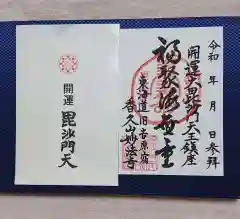 令和 年 月 日 参拝
開運大毘沙門天王鎮座
福聚海無量
東海道旧吉原宿
香久山妙法寺
開運
毘沙門天